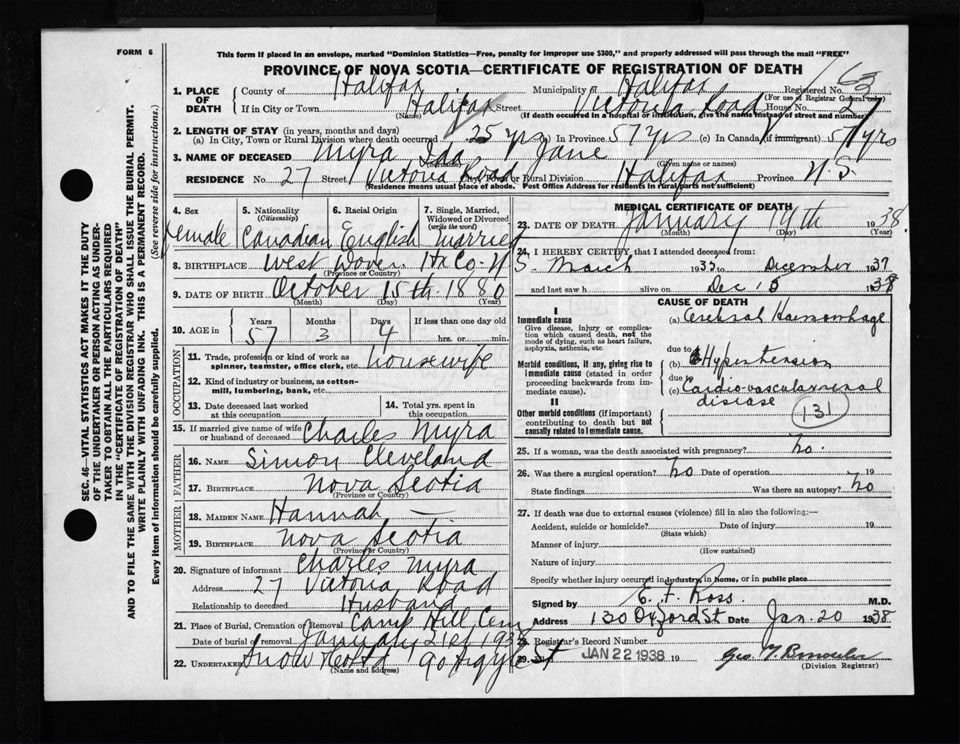 FORM 6
This form if placed in an envelope, marked "Dominion Statistics—Free, penalty for improper use $300," and properly addressed will pass through the mail "FREE"
PROVINCE OF NOVA SCOTIA—CERTIFICATE OF REGISTRATION OF DEATH
1. PLACE OF DEATH County of Halifax Municipality of Halifax Registered No. 63
(For use of Registrar General only)
If in City or Town Halifax Street Victoria Road House No. 27
(Name) (If death occurred in a hospital or institution, give the name instead of street and number)
2. LENGTH OF STAY (in years, months and days)
(a) In City, Town or Rural Division where death occurred 25 yrs (b) In Province 57 yrs (c) In Canada (if immigrant) 57 yrs
3. NAME OF DECEASED Myra Ida Jane
(Surname) (Given name or names)
RESIDENCE No. 27 Street Victoria Road City, Town or Rural Division Halifax Province N.S.
(Residence means usual place of abode. Post Office Address for residents in rural parts not sufficient)
4. Sex 5. Nationality (Citizenship) 6. Racial Origin 7. Single, Married, Widowed or Divorced (write the word)
Female Canadian English Married
8. BIRTHPLACE West Dover Hx Co. N.S.
(Province or Country)
9. DATE OF BIRTH October 15th 1880
(Month) (Day) (Year)
10. AGE in Years Months Days If less than one day old
57 3 4 hrs. or min.
OCCUPATION
11. Trade, profession or kind of work as spinner, teamster, office clerk, etc. Housewife
12. Kind of industry or business, as cotton-mill, lumbering, bank, etc.
13. Date deceased last worked at this occupation
14. Total yrs. spent in this occupation
15. If married give name of wife or husband of deceased Charles Myra
FATHER
16. NAME Simon Cleveland
17. BIRTHPLACE Nova Scotia
(Province or Country)
MOTHER
18. MAIDEN NAME Hannah —
19. BIRTHPLACE Nova Scotia
(Province or Country)
20. Signature of informant Charles Myra
Address 27 Victoria Road
Relationship to deceased Husband
21. Place of Burial, Cremation or Removal Camp Hill Cem
Date of burial or removal January 21st 1938
22. UNDERTAKER Snow & Co Ltd 90 Argyle St
(Name and Address)
MEDICAL CERTIFICATE OF DEATH
23. DATE OF DEATH January 19th 1938
(Month) (Day) (Year)
24. I HEREBY CERTIFY that I attended deceased from:
March 1935 to December 1937
and last saw h alive on Dec 15 1938
CAUSE OF DEATH
I
Immediate cause
Give disease, injury or complication which caused death, not the mode of dying, such as heart failure, asphyxia, asthenia, etc.
(a) Cerebral Haemorrhage
due to
Morbid conditions, if any, giving rise to immediate cause (stated in order proceeding backwards from immediate cause).
(b) Hypertension
due to
(c) Cardio-vascular-renal disease
131
II
Other morbid conditions (if important) contributing to death but not causally related to immediate cause.
25. If a woman, was the death associated with pregnancy? No.
26. Was there a surgical operation? No Date of operation 19
State findings Was there an autopsy? No
27. If death was due to external causes (violence) fill in also the following:—
Accident, suicide or homicide? Date of injury 19
(State which)
Manner of injury
(How sustained)
Nature of injury
Specify whether injury occurred in industry, in home, or in public place
Signed by E. F. Ross. M.D.
Address 130 Oxford St Date Jan. 20 1938
28. Registrar's Record Number
29. JAN 22 1938 19 Geo.
(Division Registrar)
SEC. 46—VITAL STATISTICS ACT MAKES IT THE DUTY
OF THE UNDERTAKER OR PERSON ACTING AS UNDER-
TAKER TO OBTAIN ALL THE PARTICULARS REQUIRED
IN THE "CERTIFICATE OF REGISTRATION OF DEATH" AND TO FILE THE SAME WITH THE DIVISION REGISTRAR WHO SHALL ISSUE THE BURIAL PERMIT.
WRITE PLAINLY WITH UNFADING INK. THIS IS A PERMANENT RECORD.
Every item of information should be carefully supplied. (See reverse side for instructions.)